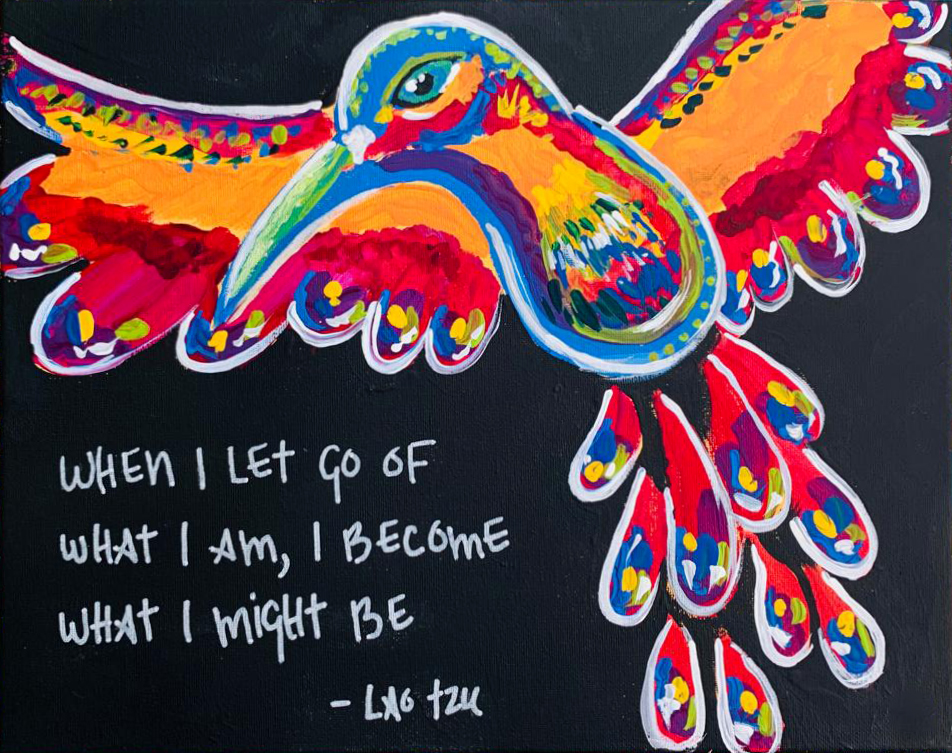 WHEN I LET GO OF
WHAT I AM, I BECOME
WHAT I MIGHT BE
- LAO TZU